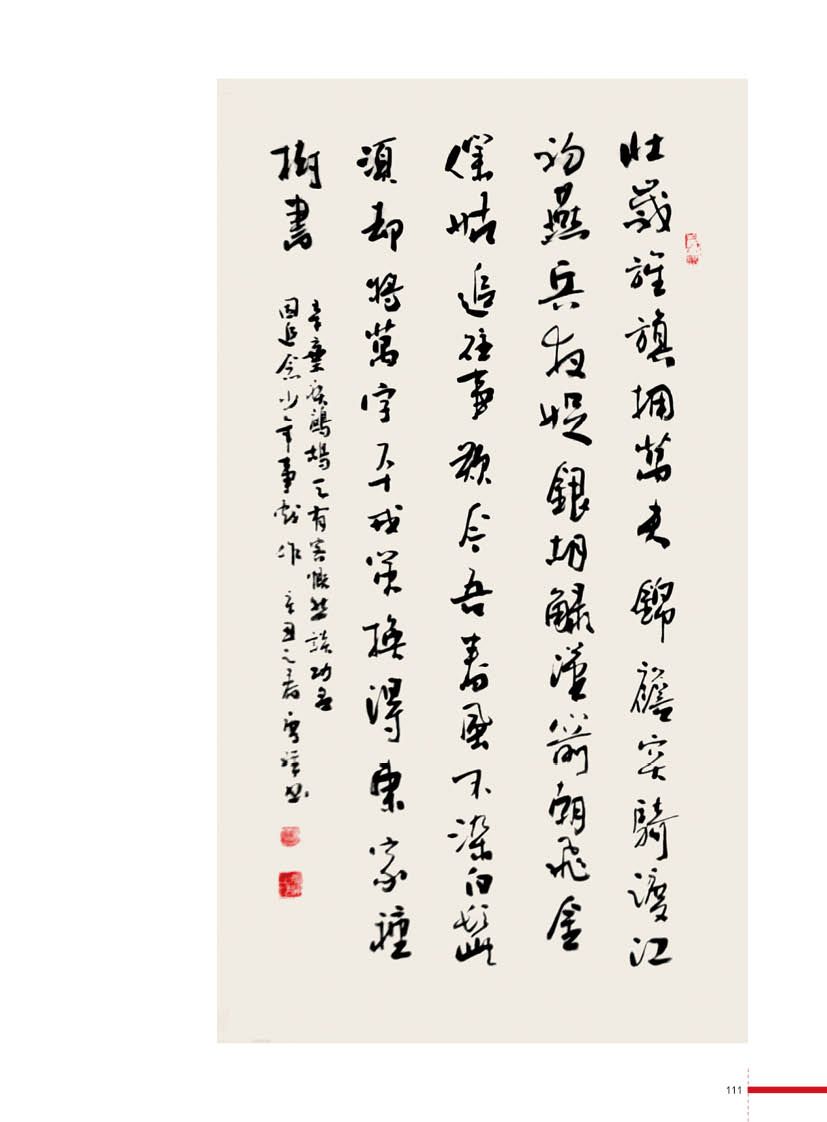 壯歲旌旗拥萬夫錦襜突騎渡江
初燕兵夜娖銀胡觮漢箭朝飛金
僕姑追往事歎今吾春風不染白髭
須却將萬字平戎策換得東家種
樹書
辛棄疾鷓鴣天有客慨然談功名
因追念少年事戲作 辛丑之春
111